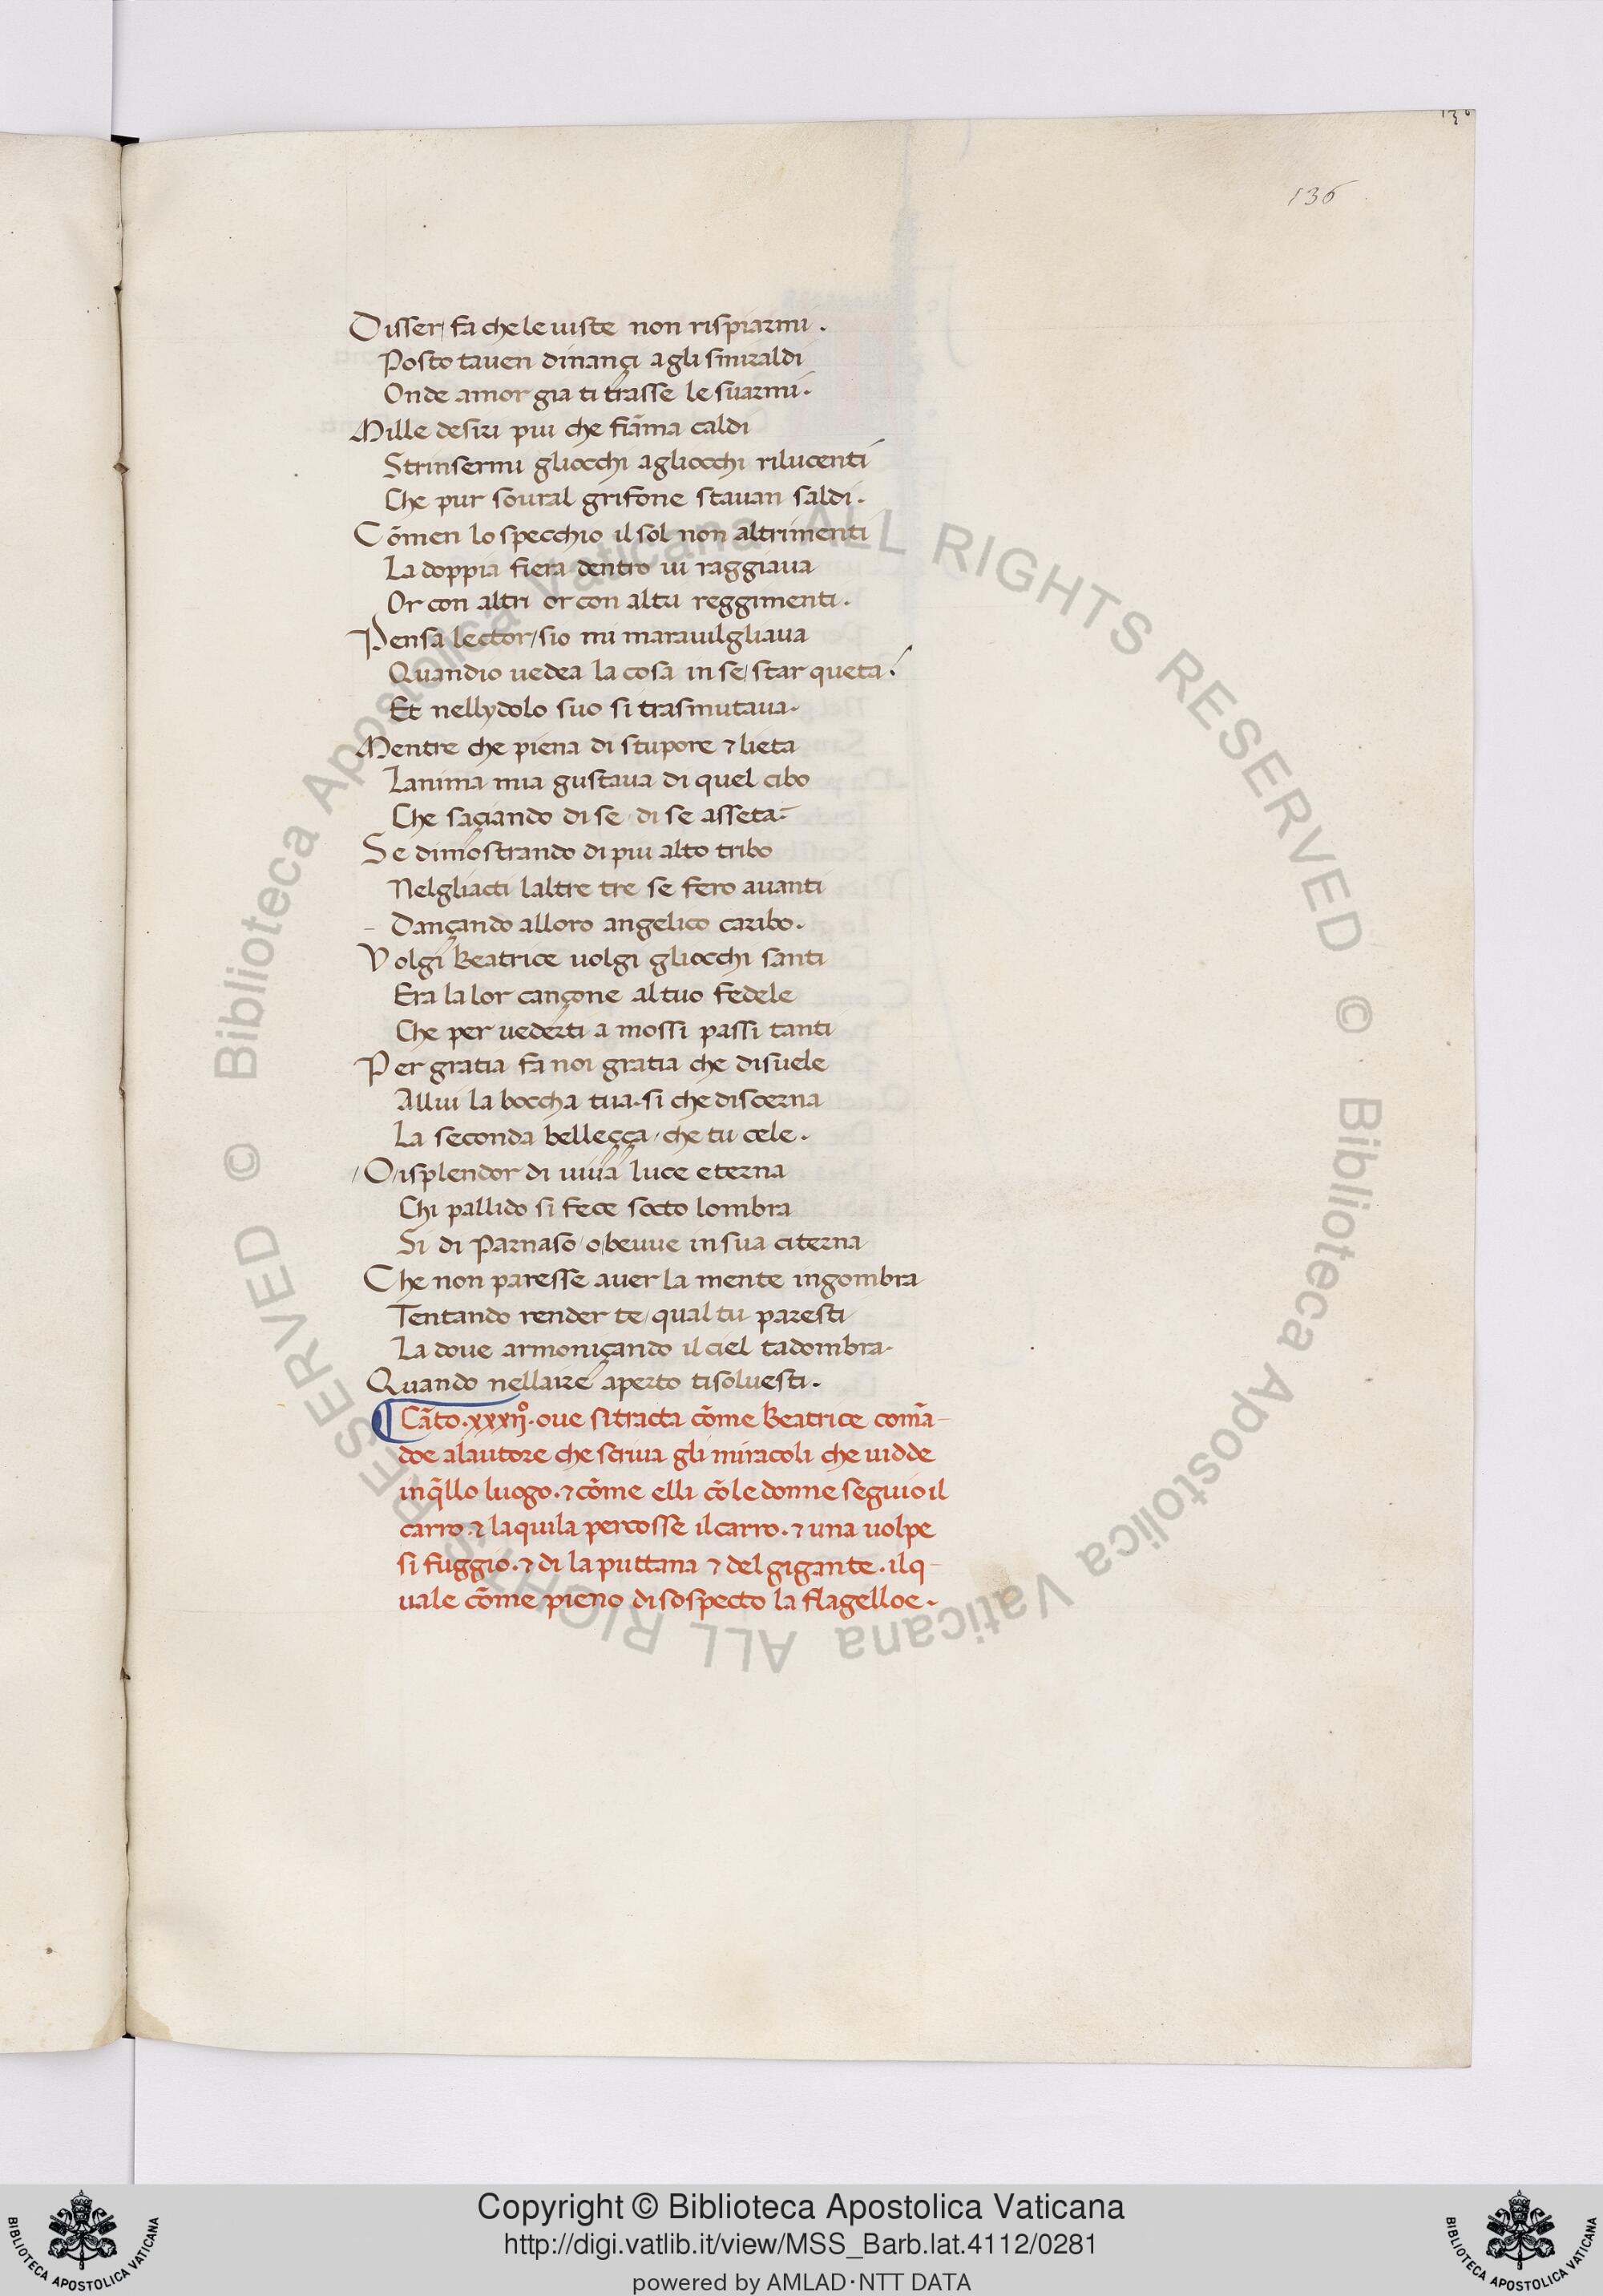 136
136
Disser/ fa che le uiste non rispiarmi .
Posto tauen dinançi agli smiraldi
Onde amor gia ti trasse le suarmi .
Mille desiri piu che fiãma caldi
Strinsermi gliocchi agliocchi rilucenti
Che pur soural grifone stauan saldi .
Cõmen lo specchio il sol non altrimenti
La doppia fiera dentro ui raggiaua
Or con altri or con altri reggimenti .
Pensa lector/ sio mi marauilgliaua
Quandio uedea la cosa in se/ star queta .
Et nellydolo suo si trasmutaua .
Mentre che piena di stupore ⁊ lieta
Lanima mia gustaua di quel cibo
Che saçiando di se di se asseta .
Se dimostrando di piu alto tribo
Nelgliacti laltre tre se fero auanti
- Dançando alloro angelico caribo .
Volgi Beatrice uolgi gliocchi santi
Era la lor cançone al tuo fedele
Che per uederti a mossi passi tanti
Per gratia fa noi gratia che disuele
Allui la boccha tua . si che discerna
La seconda belleçça / che tu cele .
/O/ isplendor di uiua luce eterna
Chi pallido si fece socto lombra
Si di Parnaso / o / beuue in sua citerna
Che non paresse auer la mente ingombra
Tentando render te / qual tu paresti
La doue armoniçando il ciel tadombra .
Quando nellaire aperto ti soluesti .
¶ Cãto . xxxijº . oue si tracta cõme Beatrice comã-
doe alautore che scriua gli miracoli che uidde
in q̃llo luogo . ⁊ cõme elli cõ le donne seguio il
carro . ⁊ laquila percosse il carro . ⁊ una uolpe
si fuggio . ⁊ di la puttana ⁊ del gigante . il q-
uale cõme pieno di sospecto la flagelloe .
© Biblioteca Apostolica Vaticana ALL RIGHTS RESERVED © Biblioteca Apostolica Vaticana ALL RIGHTS RESERVED
Copyright © Biblioteca Apostolica Vaticana
http://digi.vatlib.it/view/MSS_Barb.lat.4112/0281
powered by AMLAD·NTT DATA
BIBLIOTECA APOSTOLICA VATICANA
BIBLIOTECA APOSTOLICA VATICANA